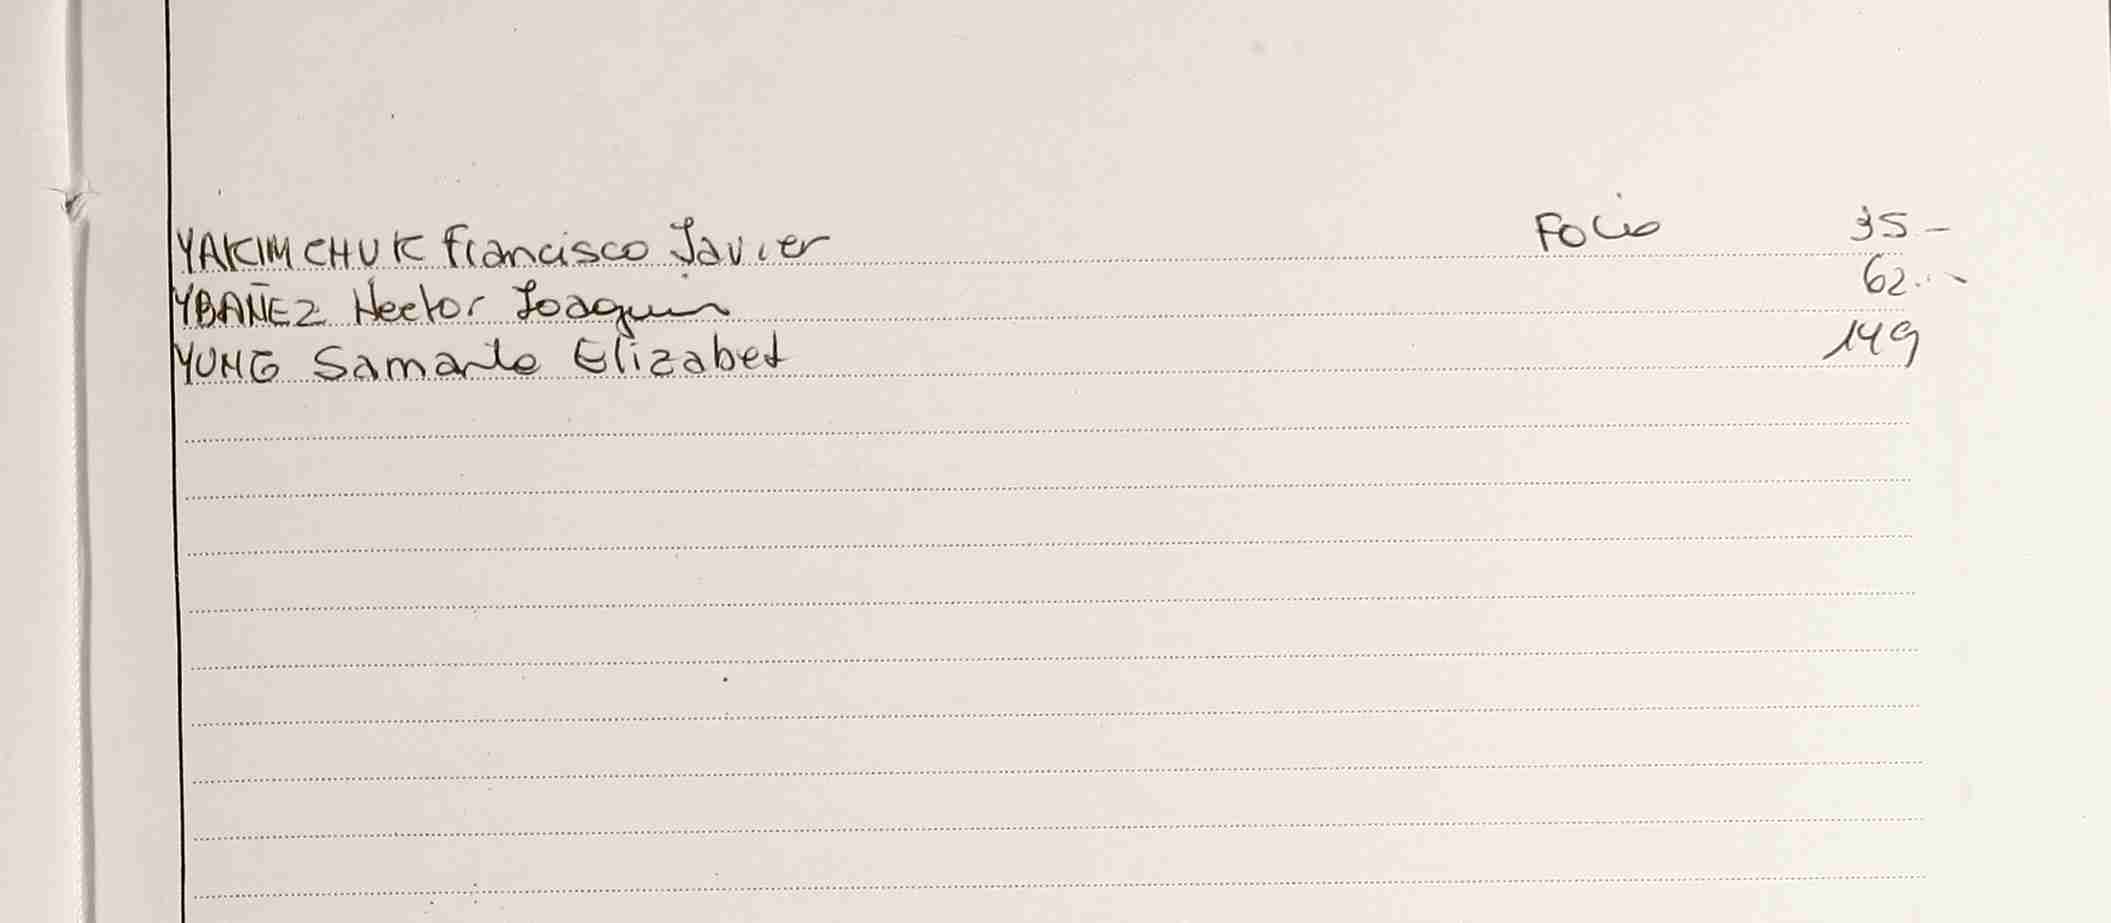 YAKIMCHUK Francisco Javier Folio 35-
YBAÑEZ Hector Joaquin 62.-
YUNG Elizabet 149